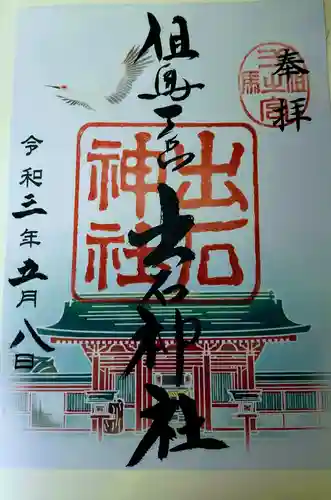 奉拝
但馬一宮
出石神社
出石
神社
令和三年五月八日